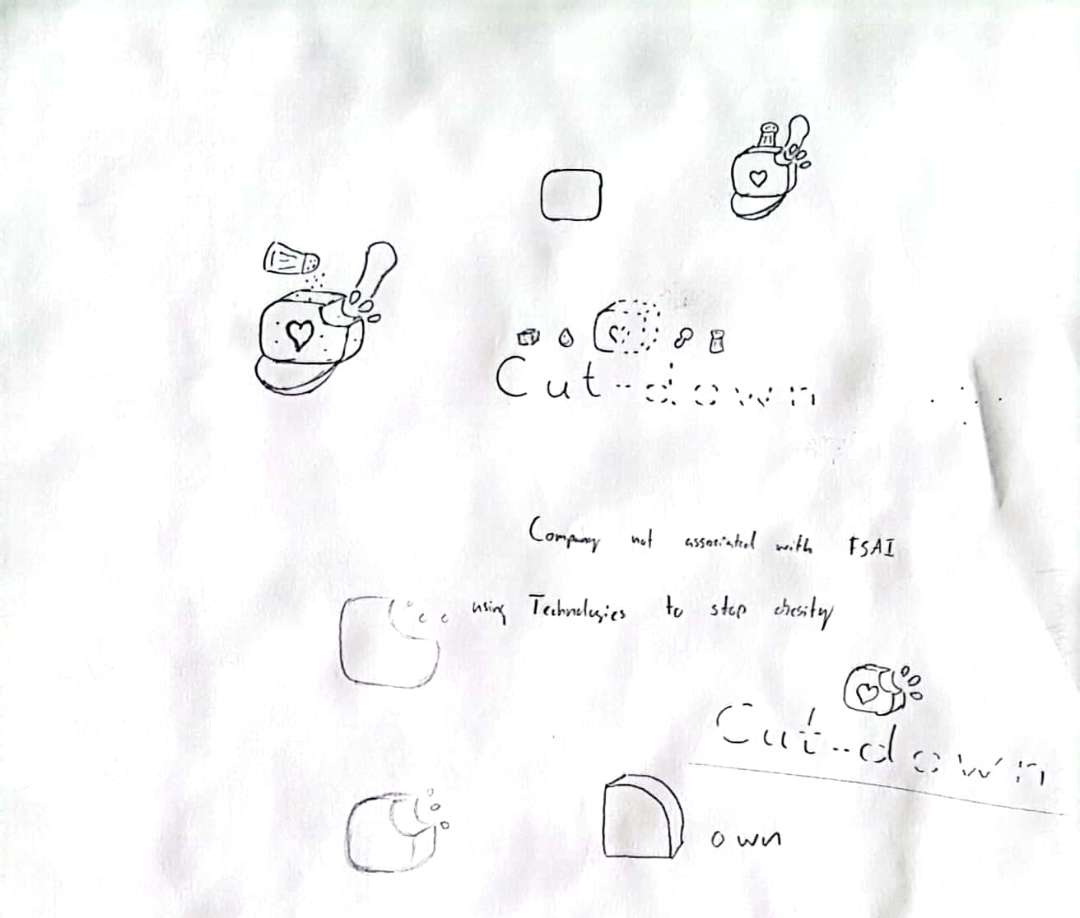 Cut-down
Company not associated with FSAI
using Technologies to stop obesity
Cut-down
own